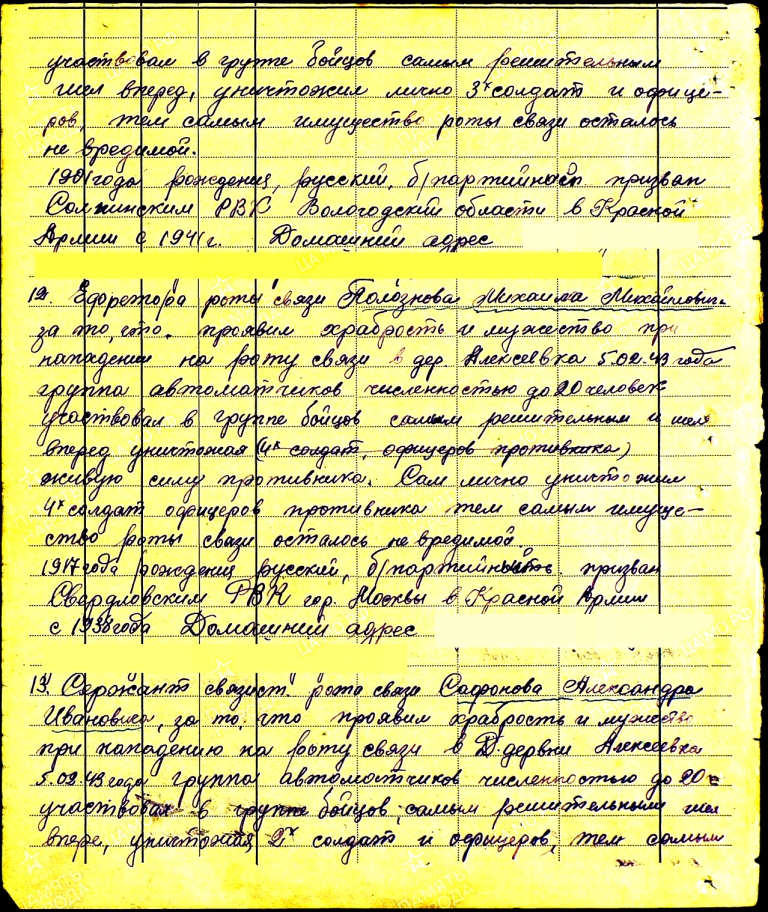 участвовал в группе бойцов самым решительным
шел вперед, уничтожил лично 3х солдат и офице-
ров, тем самым имущество роты связи осталось
не вредимой.
1901 года рождения, русский, б/партийной призван
РВК Вологодский области в Красной
Армии с 1941 г. Домашний адрес
12. Ефрейтора роты связи Полознова Михаила Михайлович.
за то, что. проявил храбрость и мужество при
нападении на роту связи в дер. Алексеевка 5.02.43 года
группа автоматчиков численностью до 20 человек
участвовал в группе бойцов самым решительным и шел
вперед уничтожая (4х солдат, офицеров противника)
живую силу противника. Сам лично уничтожил
4х солдат офицеров противника тем самым имуще-
ство роты связи осталось не вредимой.
1917 года рождения русский, б/партийность призван
Свердловским РВК гор. Москвы в Красной Армии
с 1938 года Домашний адрес
13. Сержант связист рота связи Сафонова Александра
Ивановича, за то, что проявил храбрость и мужество
при нападению на роту связи в Д. дервни Алексеевка
5.02.43 года группа автомотчиков численностью до 20 ч
участвовал в группе бойцов, самым решительным шел
впере, уничтожая 2х солдат и офицеров, тем самым